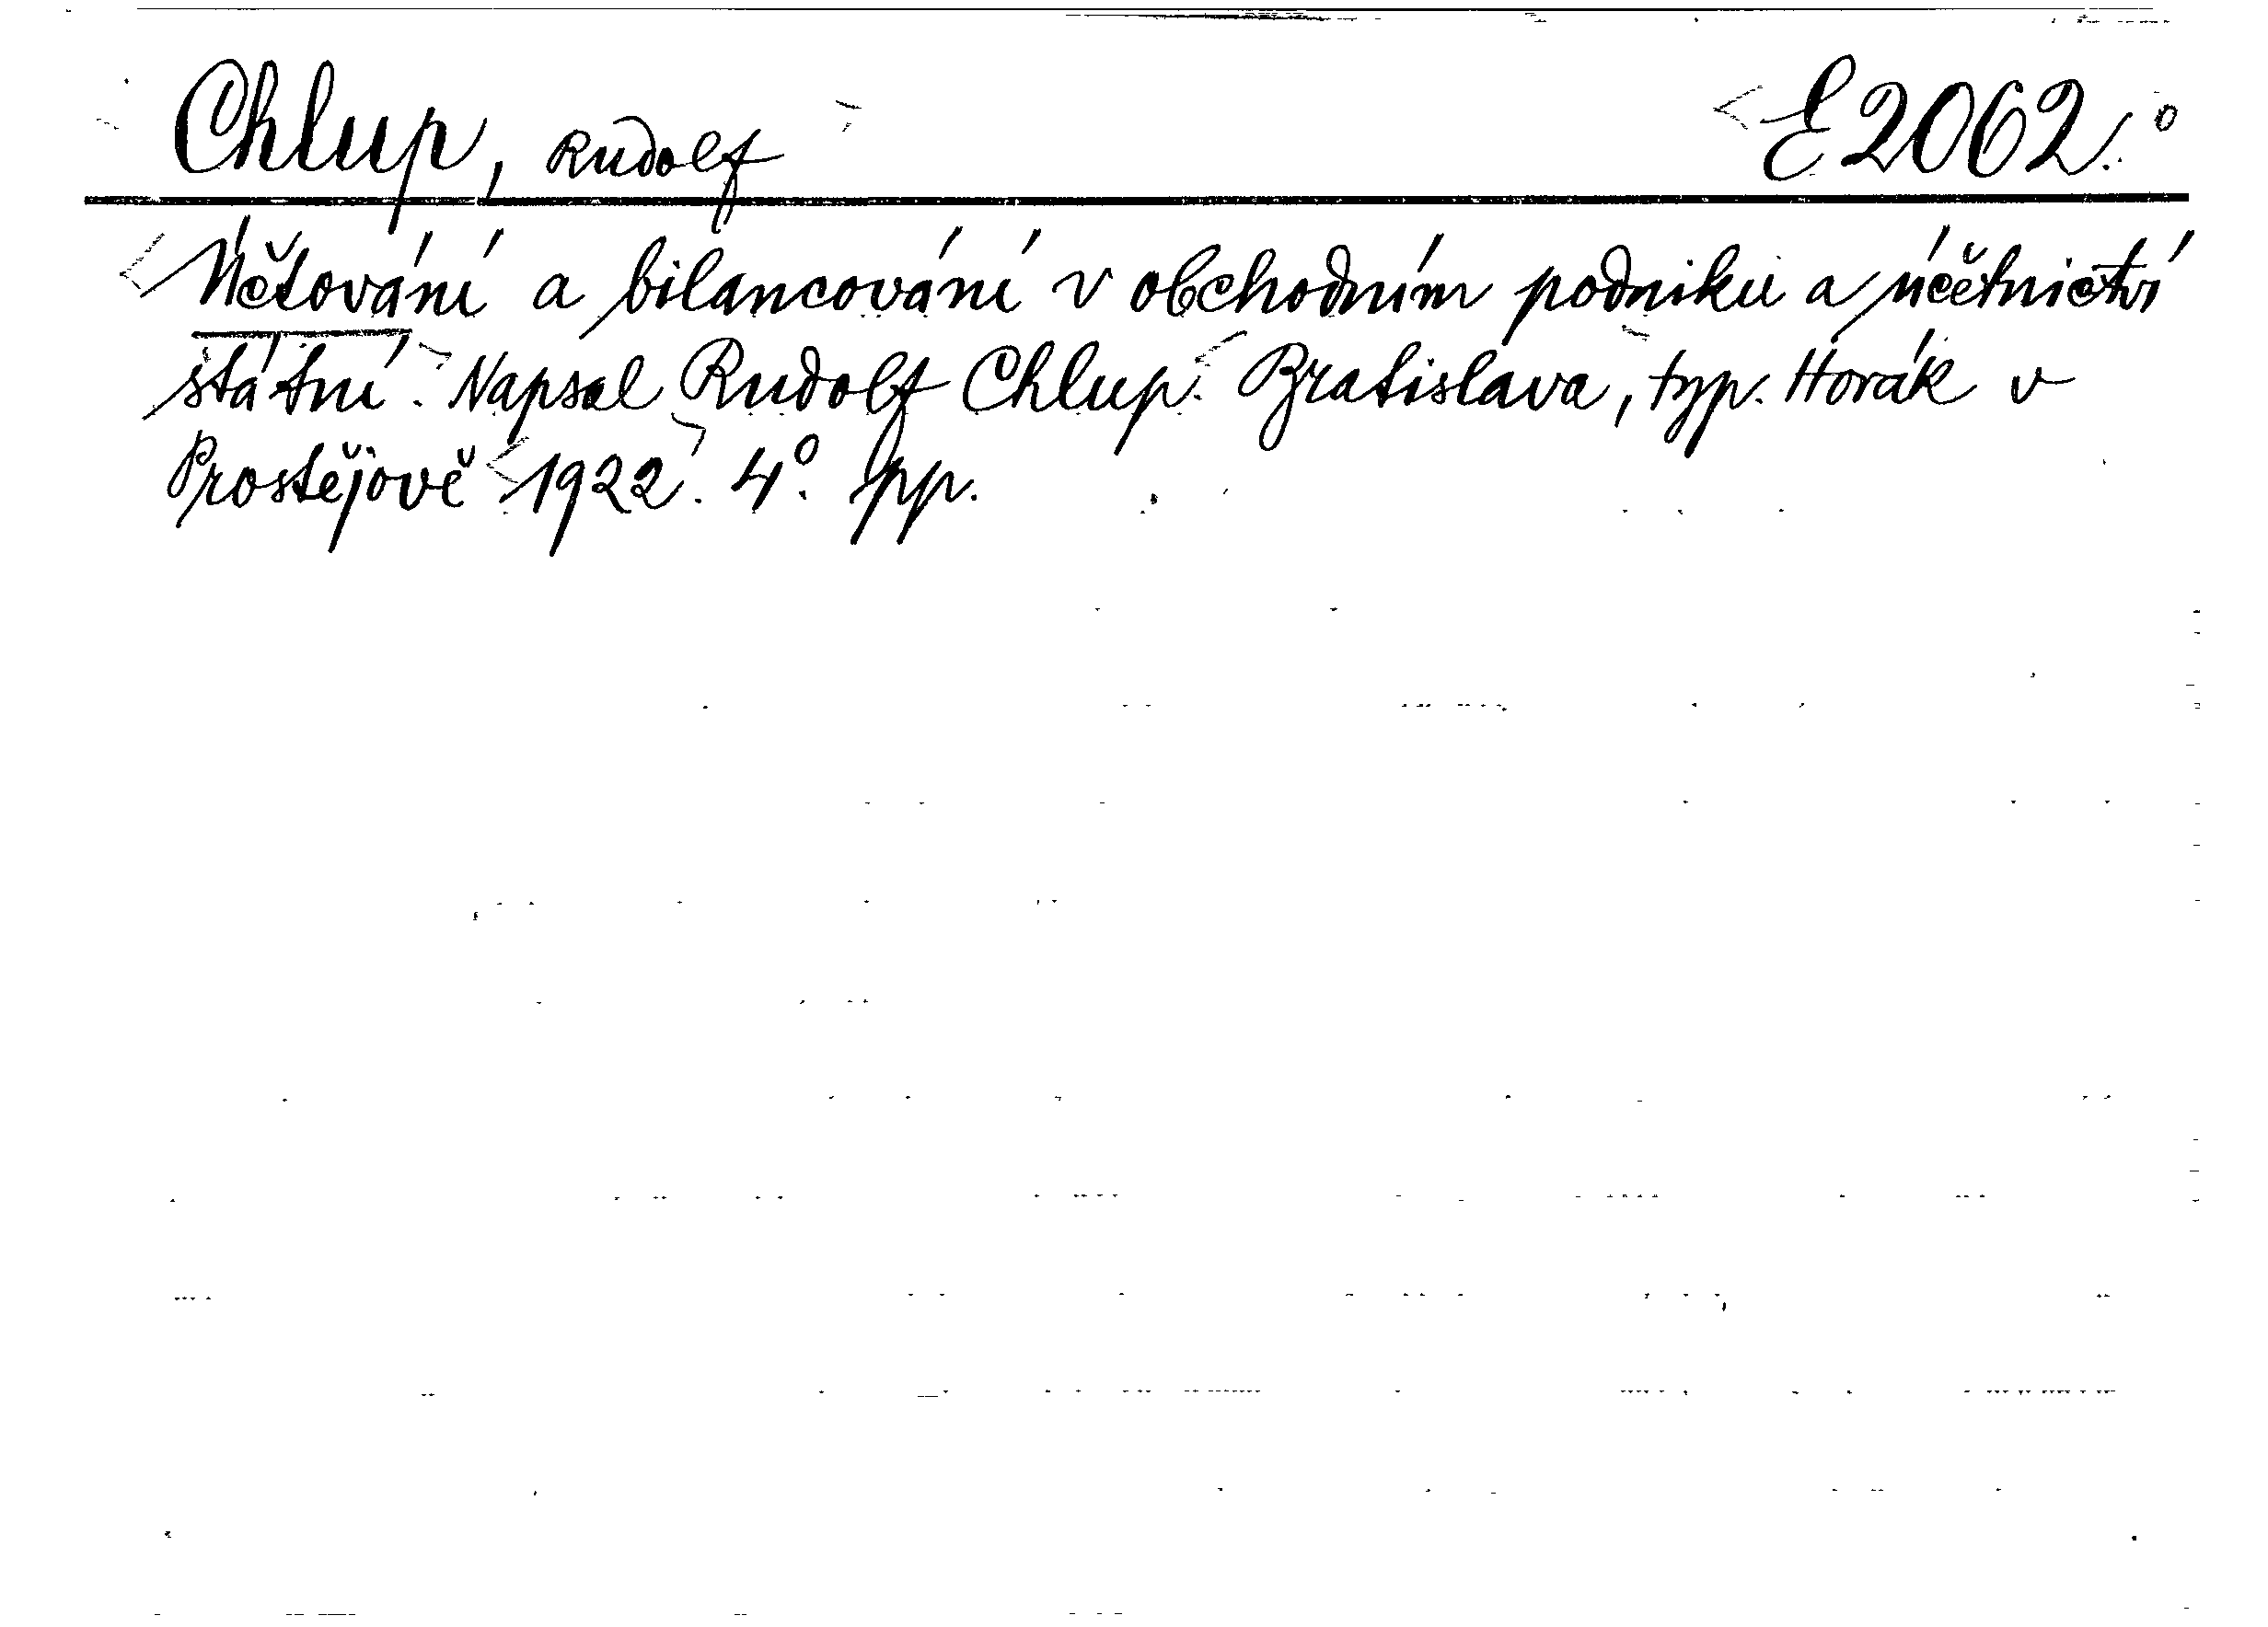 Chlup, Rudolf E 2062.°
Účtování a bilancování v obchodním podniku a účetnictví
státní. Napsal Rudolf Chlup. Bratislava, typ. Horák v
Prostějově 1922. 4°. pp.